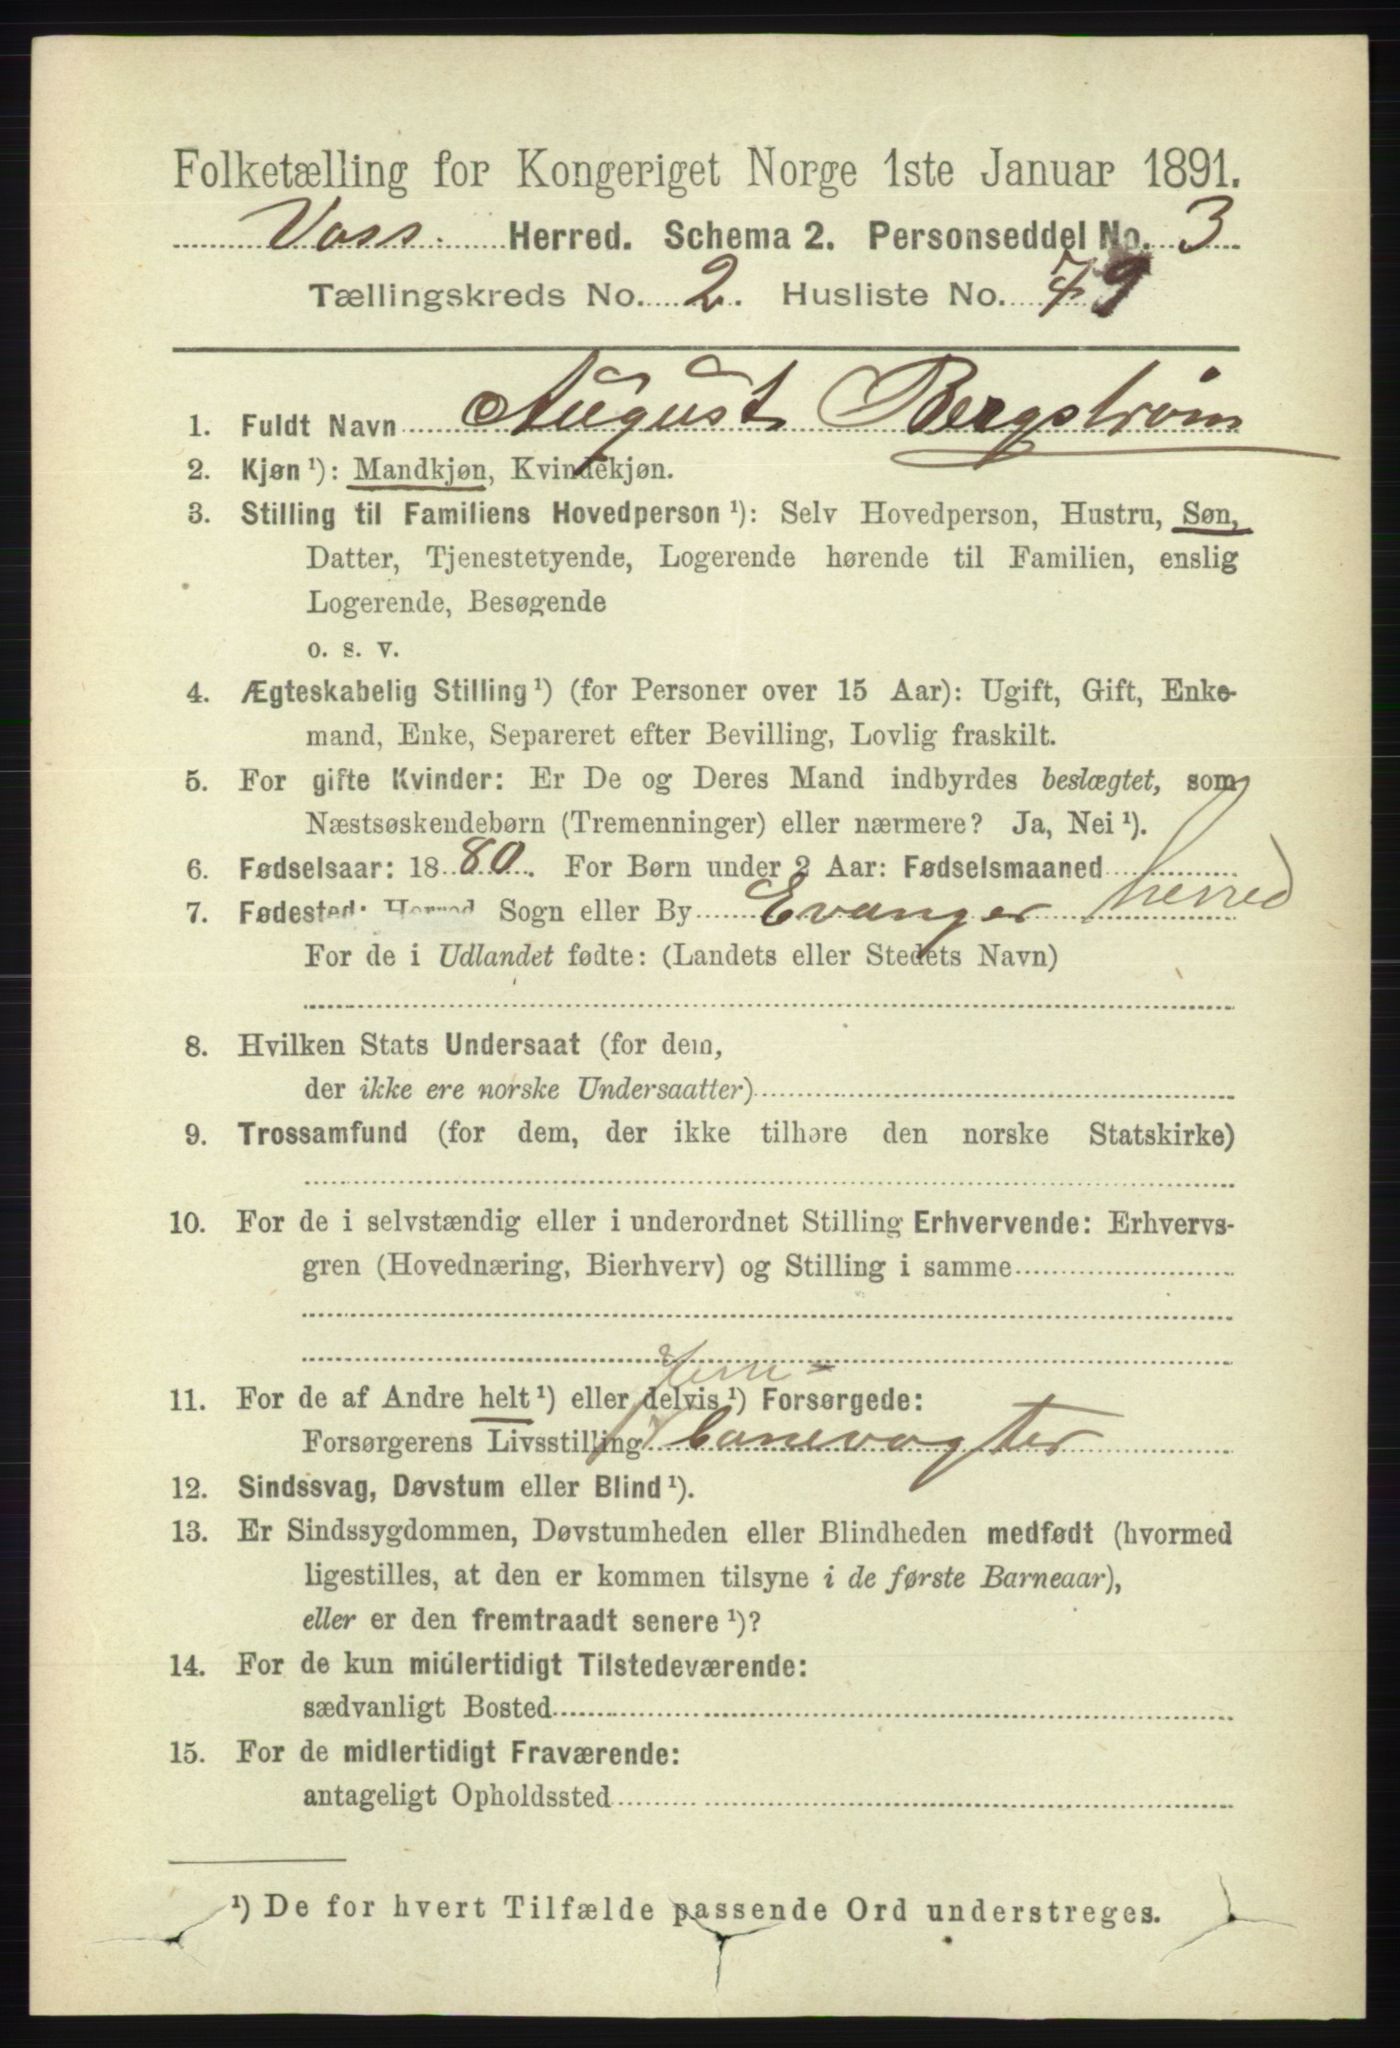 Folketælling for Kongeriget Norge 1ste Januar 1891.
Voss. Herred. Schema 2. Personseddel No. 3
Tællingskreds No. 2. Husliste No. 79
1. Fuldt Navn August Bergstrøm
2. Kjøn ¹): Mandkjøn, Kvindekjøn.
3. Stilling til Familiens Hovedperson ¹): Selv Hovedperson, Hustru, Søn,
Datter, Tjenestetyende, Logerende hørende til Familien, enslig
Logerende, Besøgende
o. s. v.
4. Ægteskabelig Stilling ¹) (for Personer over 15 Aar): Ugift, Gift, Enke-
mand, Enke, Separeret efter Bevilling, Lovlig fraskilt.
5. For gifte Kvinder: Er De og Deres Mand indbyrdes beslægtet, som
Næstsøskendebørn (Tremenninger) eller nærmere? Ja, Nei ¹).
6. Fødselsaar: 1880. For Børn under 2 Aar: Fødselsmaaned
7. Fødested: Herred, Sogn eller By Evanger herred
For de i Udlandet fødte: (Landets eller Stedets Navn)
8. Hvilken Stats Undersaat (for dem,
der ikke ere norske Undersaatter)
9. Trossamfund (for dem, der ikke tilhøre den norske Statskirke)
10. For de i selvstændig eller i underordnet Stilling Erhvervende: Erhvervs-
gren (Hovednæring, Bierhverv) og Stilling i samme
Jern-
11. For de af Andre helt ¹) eller delvis ¹) Forsørgede:
Forsørgerens Livsstilling Banevogter
12. Sindssvag, Døvstum eller Blind ¹).
13. Er Sindssygdommen, Døvstumheden eller Blindheden medfødt (hvormed
ligestilles, at den er kommen tilsyne i de første Barneaar),
eller er den fremtraadt senere ¹)?
14. For de kun midlertidigt Tilstedeværende:
sædvanligt Bosted
15. For de midlertidigt Fraværende:
antageligt Opholdssted
¹) De for hvert Tilfælde passende Ord understreges.